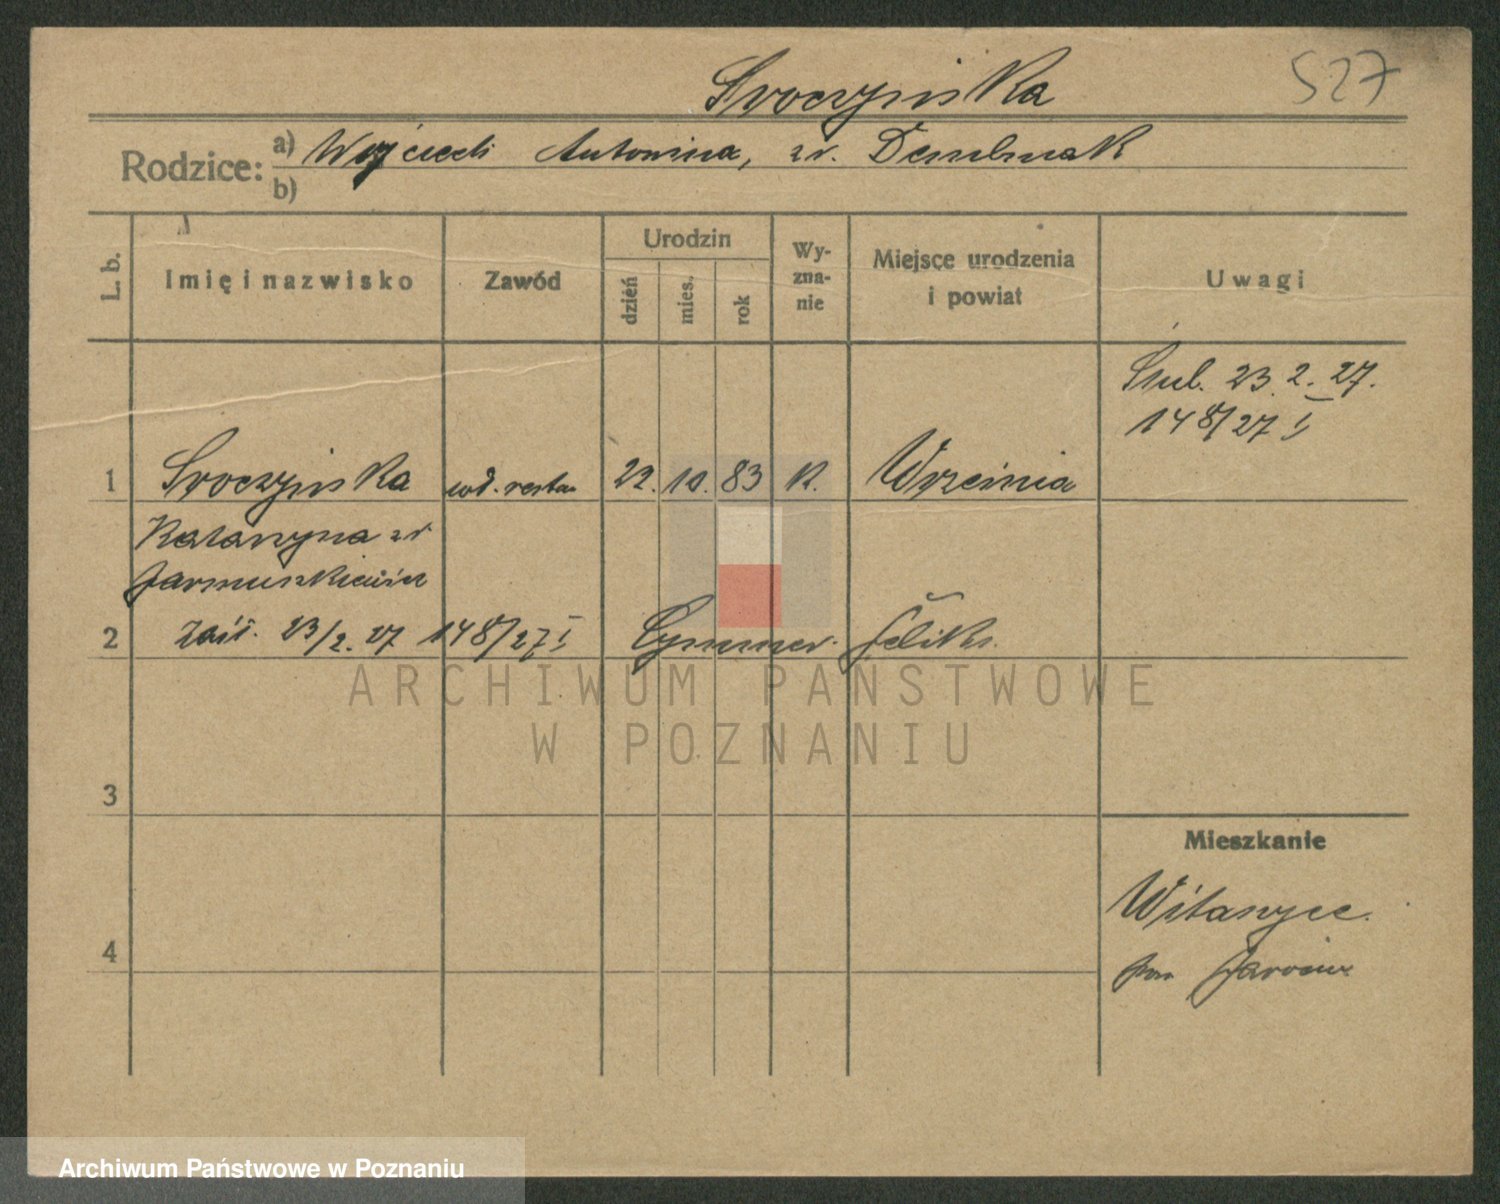 Sroczyńska
527
Rodzice: a) Wojciech Antonina, zd.
b)
L. b.
Imię i nazwisko
Zawód
Urodzin
dzień
mies.
rok
Wy-
zna-
nie
Miejsce urodzenia
i powiat
Uwagi
Ślub. 23. 2. 27.
148/27 I
1 Sroczyńska 22. 10. 83 K. Września
Katarzyna zd
Jarmuszkiewicz
2 23/2. 27 148/27 I
ARCHIWUM PAŃSTWOWE
W POZNANIU
3
Mieszkanie
Witaszyce.
4
pow Jarocin
Archiwum Państwowe w Poznaniu